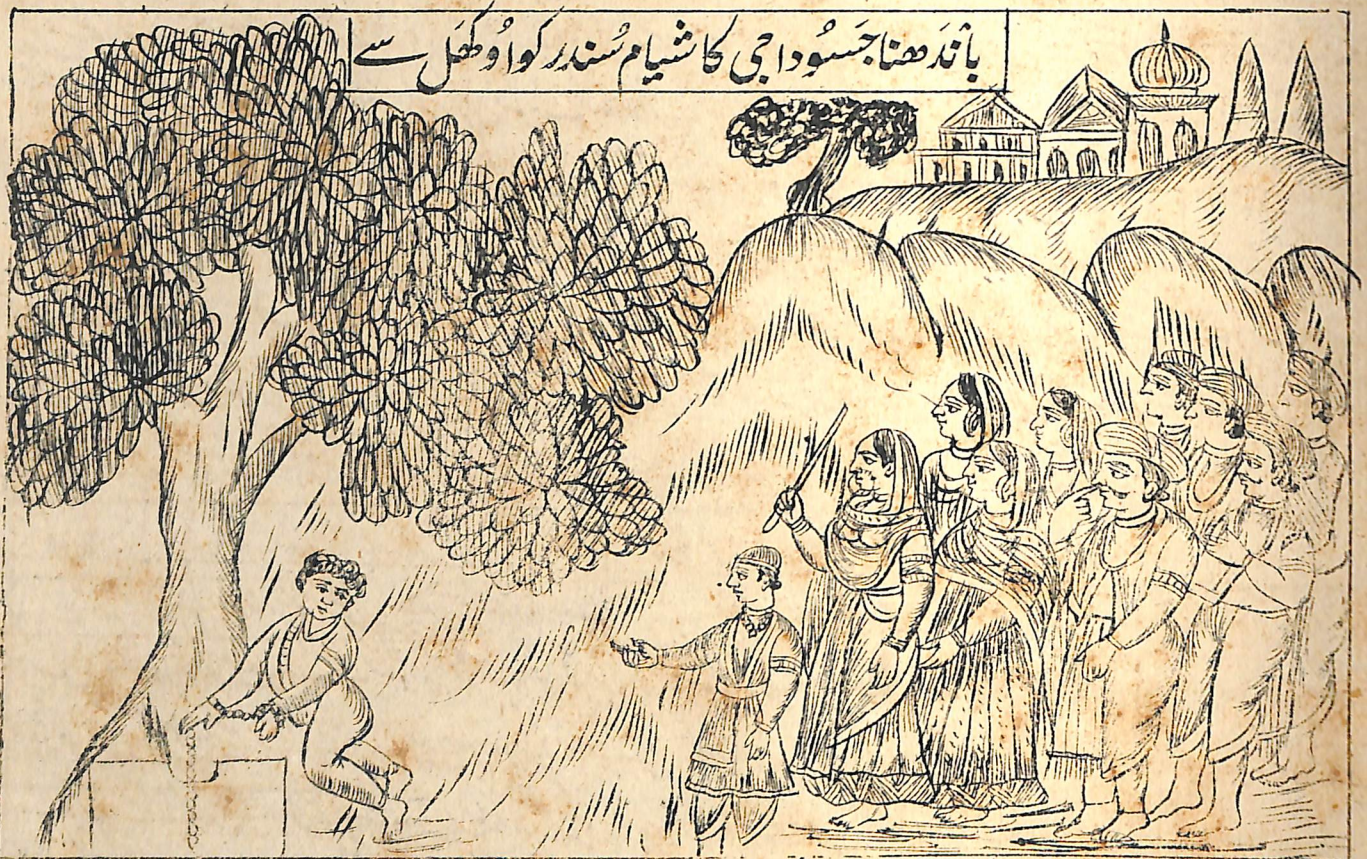 باندَھنا جَسُوداجی کا شیام سُندر کو اوُکھَل سے